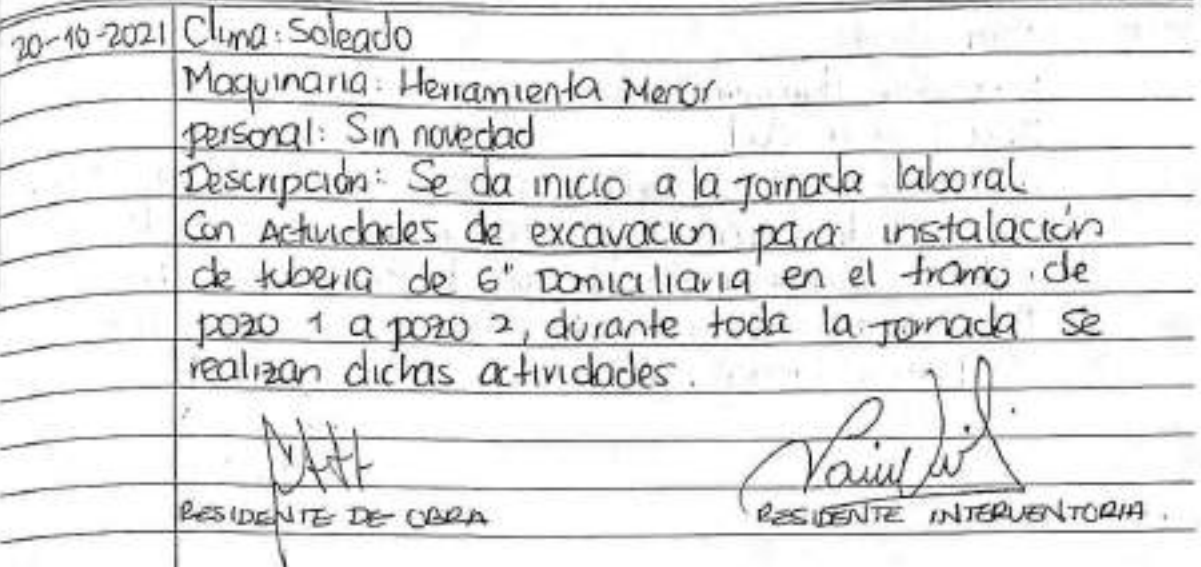 20-10-2021 Clima: Soleado
Maquinaria: Herramienta Menor
personal: Sin novedad
Descripción: Se da inicio a la jornada laboral
Con Actividades de excavacion para instalación
de tuberia de 6" Domiciliaria en el tramo de
pozo 1 a pozo 2, durante toda la jornada se
realizan dichas actividades.
RESIDENTE DE OBRA RESIDENTE INTERVENTORIA.